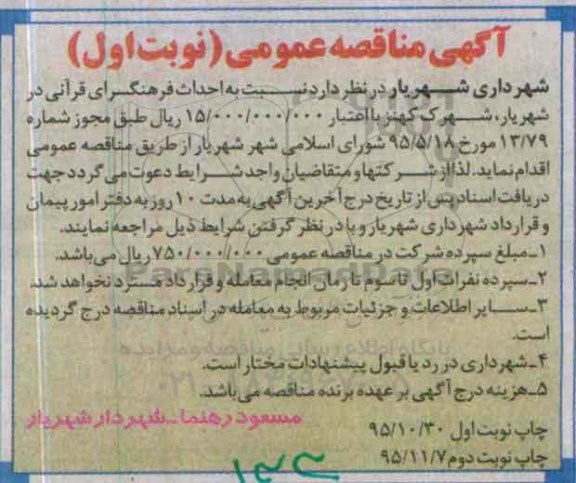 آگهی مناقصه عمومی (نوبت اول)
شهرداری شهریار در نظر دارد نسبت به احداث فرهنگسرای قرآنی در
شهریار، شهرک کهنز با اعتبار ۱۵/۰۰۰/۰۰۰/۰۰۰ ریال طبق مجوز شماره
۱۳/۷۹ مورخ ۹۵/۵/۱۸ شورای اسلامی شهر شهریار از طریق مناقصه عمومی
اقدام نماید. لذا از شرکتها و متقاضیان واجد شرایط دعوت می گردد جهت
دریافت اسناد پس از تاریخ درج آخرین آگهی به مدت ۱۰ روز به دفتر امور پیمان
و قرارداد شهرداری شهریار و با در نظر گرفتن شرایط ذیل مراجعه نمایند.
۱ـ مبلغ سپرده شرکت در مناقصه عمومی ۷۵۰/۰۰۰/۰۰۰ ریال می باشد.
۲ـ سپرده نفرات اول تا سوم تا زمان انجام معامله و قرارداد مسترد نخواهد شد.
ParsNamadData
۳ـ سایر اطلاعات و جزئیات مربوط به معامله در اسناد مناقصه درج گردیده
است.
پایگاه اطلاع رسانی مناقصه و مزایده
۴ـ شهرداری در رد یا قبول پیشنهادات مختار است.
۵ـ هزینه درج آگهی بر عهده برنده مناقصه می باشد.
مسعود رهنما ـ شهردار شهریار
چاپ نوبت اول ۹۵/۱۰/۳۰
چاپ نوبت دوم ۹۵/۱۱/۷